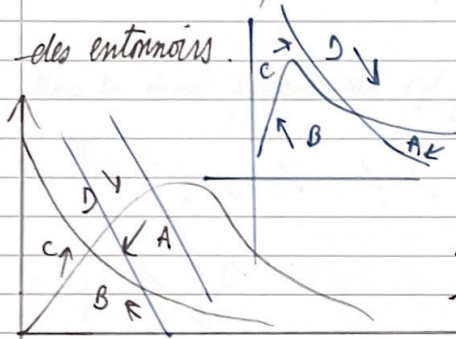 des entonnoirs.
C D
B A
D
C A
B